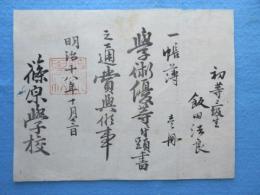 初等三級生
飯田法良
一帳簿 壱冊
學術優等ニ付頭書
之通賞與候事
明治十八年十月三日
篠原學校